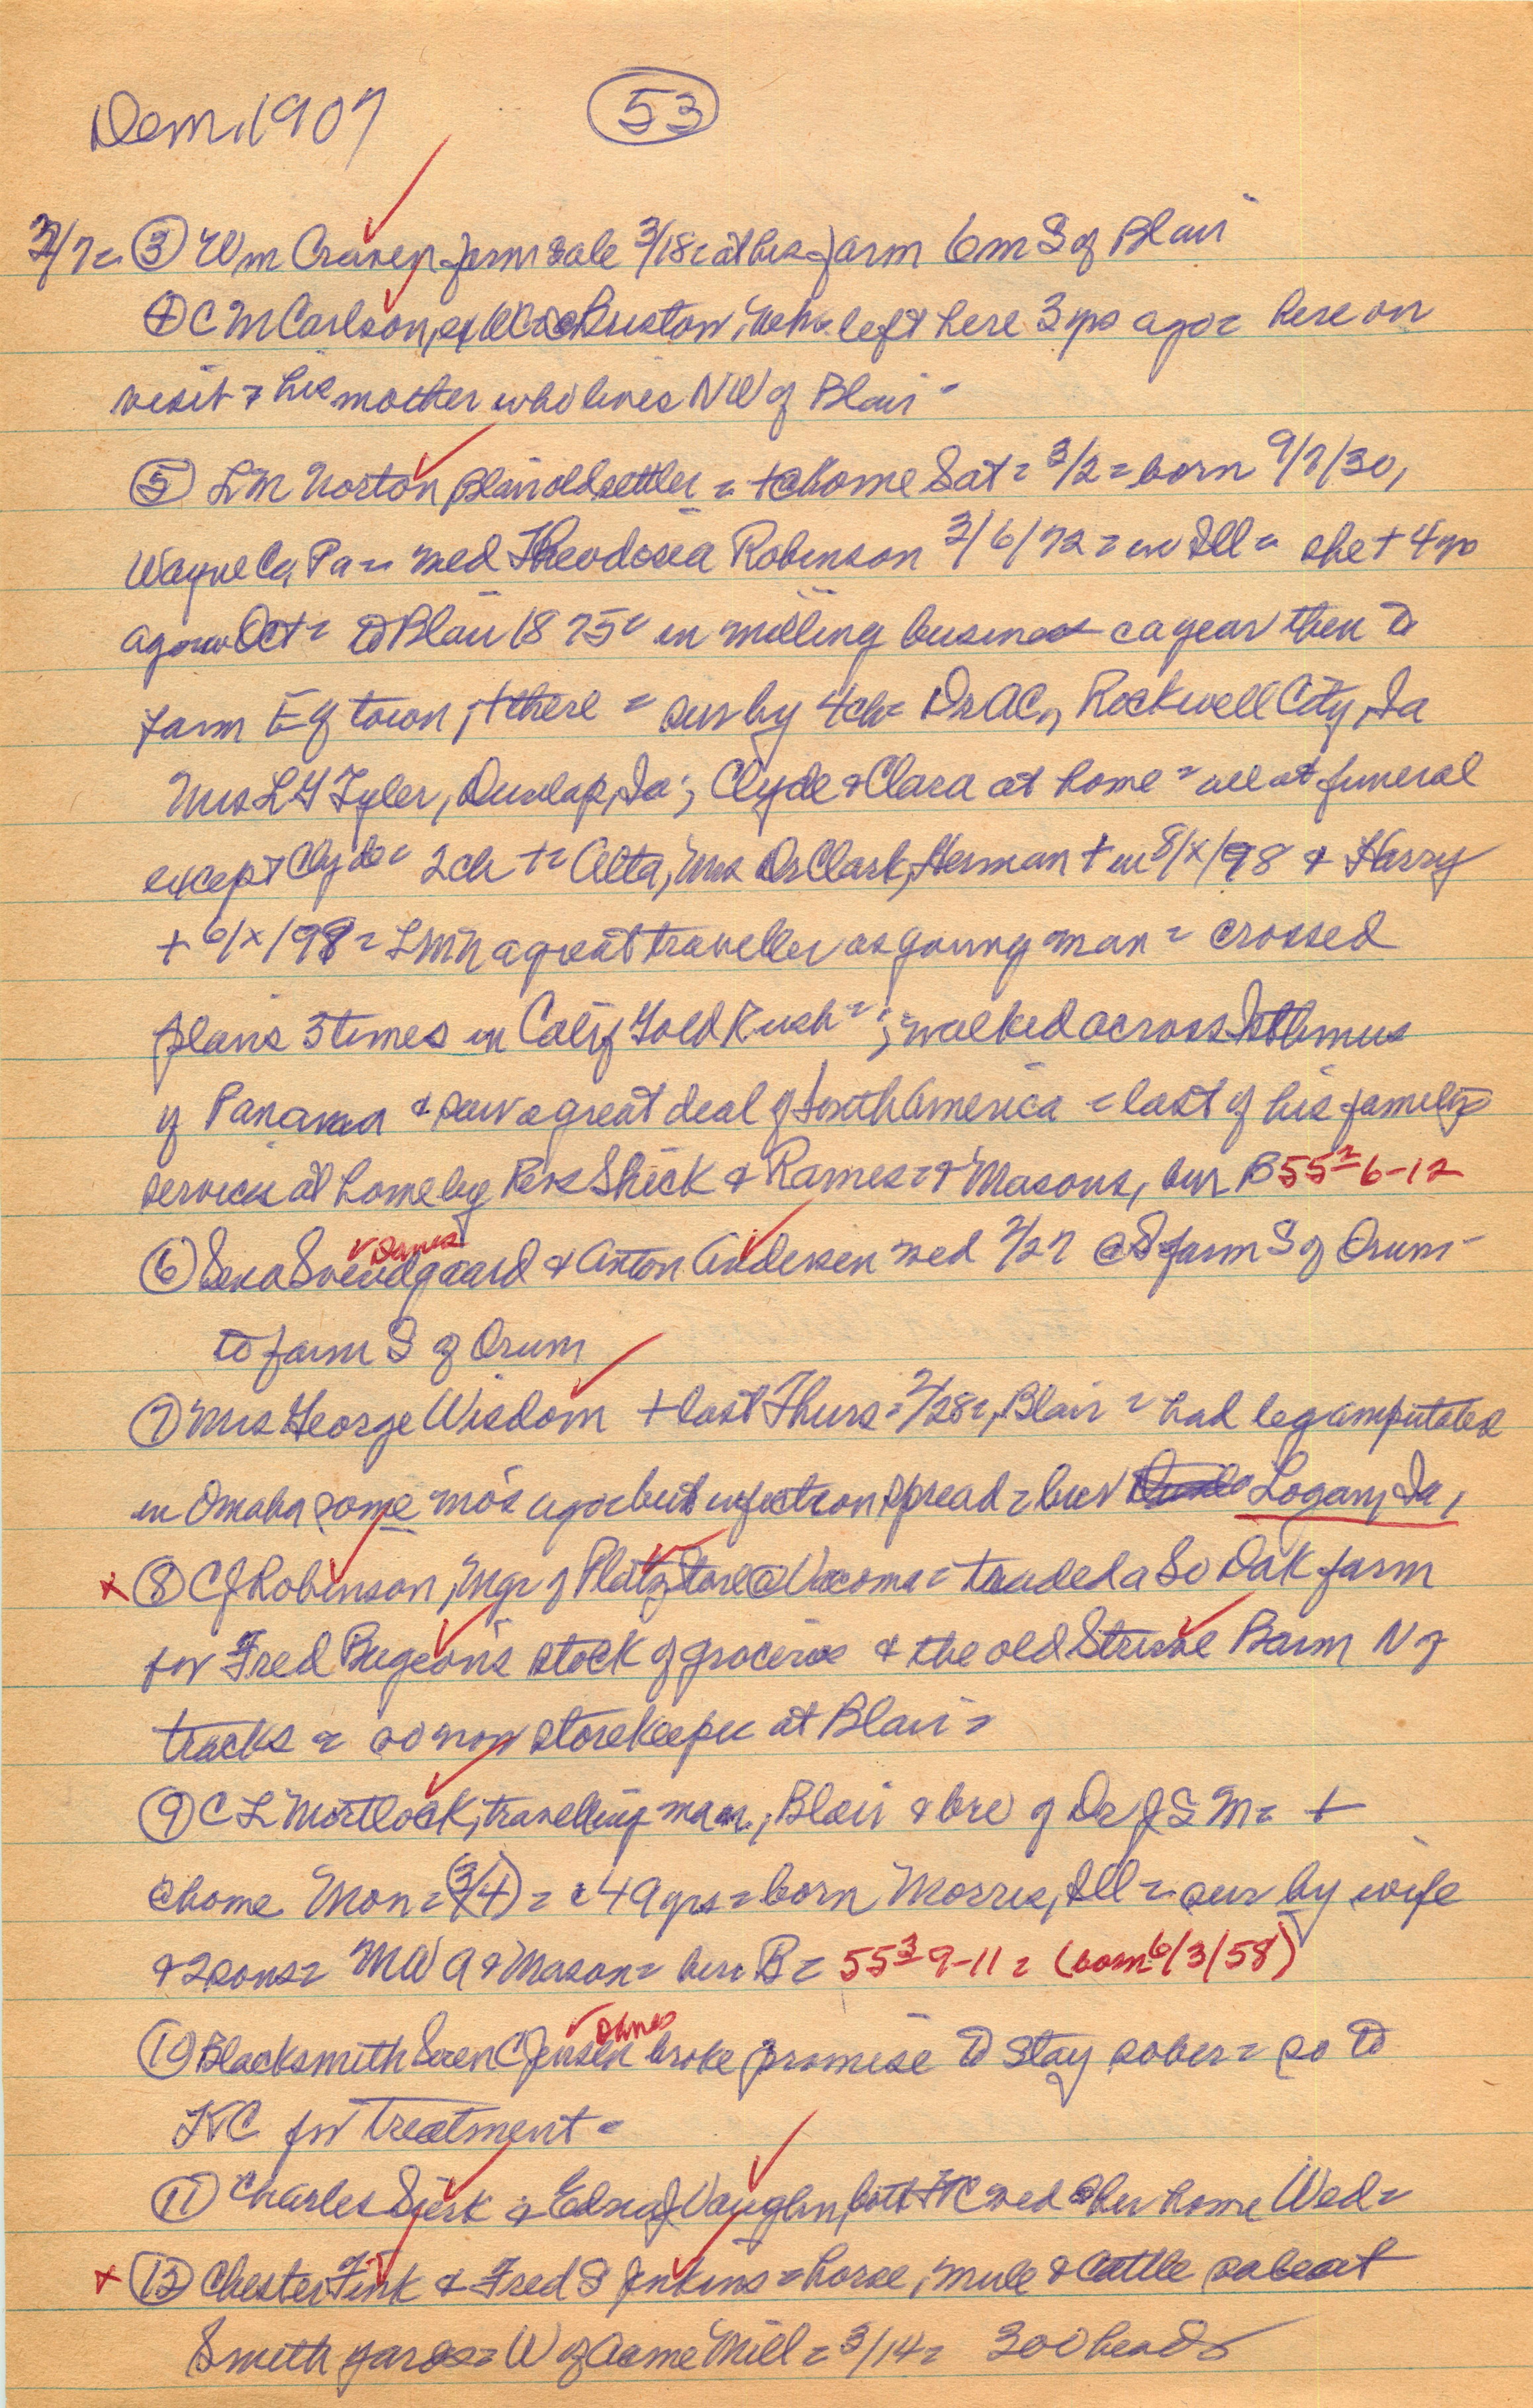 Dem 1907
53
3/7= ③ Wm Craven farm sale 3/18= at his farm 6m S of Blair
④ C M Carlson, who left here 3 yrs ago= here on
visit = his mother who lives NW of Blair=
⑤ L M Norton, Blair old settler = + @ home Sat = 3/2 = born 9/7/30,
Wayne Co, Pa= med Theodosia Robinson 3/6/72 = in Ill = she + 4 yrs
ago in Oct= to Blair 1875= in milling business ca year then to
farm E of town, + there = sur by 4 ch= Dr AC, Rockwell City, Ia
Mrs L G Tyler, Dunlap, Ia; Clyde & Clara at home = all at funeral
except Clyde= 2 ch += Alta, Mrs Dr Clark, Herman + in 8/x/98 & Harry
+ 6/x/98 = LMN a great traveller as young man = crossed
plains 3 times in Calif Gold Rush =; walked across Isthmus
of Panama & saw a great deal of South America = last of his family=
services at home by Revs Shick & Rames = & Masons, bur B 55 2= 6-12
Danes
⑥ Sena Svendgaard & Anton Andersen med 2/27 @ S farm S of Orum=
to farm S of Orum
⑦ Mrs George Wisdom + last Thurs = 2/28=, Blair = had leg amputated
in Omaha some mos ago but infection spread = bur Logan, Ia,
x ⑧ C J Robinson, Mgr of Platz Store @ Vacoma = traded a So Dak farm
for Fred Bugeon's stock of groceries & the old Barn N of
tracks = so now storekeeper at Blair=
⑨ C L Mortlock, travelling man, Blair & bro of Dr J S M= +
@ home Mon = (3/4) = c 49 yrs = born Morris, Ill = sur by wife
& 2 sons= MWA & Mason= bur B= 55 3= 9-11 = (born 6/3/58)
Danes
⑩ Blacksmith Soren C Jensen broke promise to stay sober = so to
KC for treatment=
⑪ Charles Sierk & Edna J Vaughn, both med @ her home Wed=
x ⑫ Chester Fink & Fred S Jenkins = horse, mule & cattle sale at
Smith yards= W of Acme Mill = 3/14= 300 heads